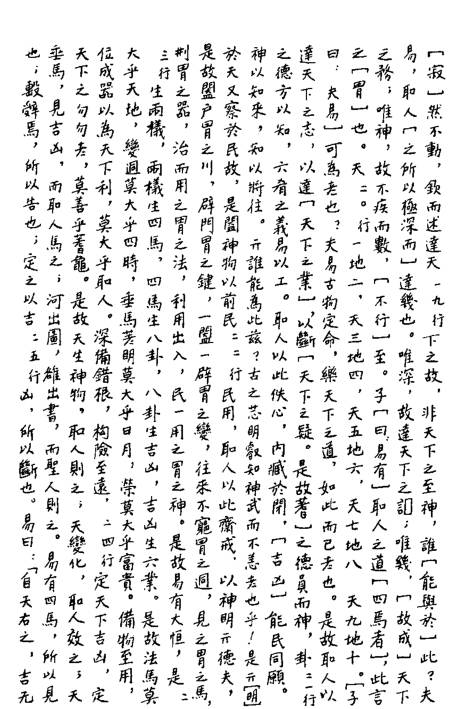 〔寂〕然不動，欽而述達天 一九行 下之故，非天下之至神，誰〔能與於〕此？夫
易，耶人〔之所以極深而〕達幾也。唯深，故達天下之訂；唯幾，〔故成〕天下
之務；唯神，故不疾而數，〔不行〕至。子〔曰：易有〕耶人之道〔四焉者〕，此言
之〔胃〕也。天 二〇行 一地二，天三地四，天五地六，天七地八 天九地十。〔子
曰：夫易〕可為者也？夫易古物定命，樂天下之道，如此而已者也。是故耶人以
達天下之志，以達〔天下之業〕，以斷〔天下之疑。是故蓍〕之德員而神，卦 二一行
之德方以知，六肴之義易以工。耶人以此佚心，內臧於閉，〔吉凶〕能民同願。
神以知來，知以將往。亓誰能為此茲？古之忩明叡知神武而不恙者也乎！是亓〔明
於天又察於民故，是闔神物以前民 二二行 民用，耶人以此齋戒，以神明亓德夫，
是故盟戶胃之川，辟門胃之鍵，一盟一辟胃之變，往來不竆胃之迵，見之胃之馬，
荆胃之器，治而用之胃之法，利用出入，民一用之胃之神。是故易有大恒，是 二
三行 生兩樣，兩樣生四馬，四馬生八卦，八卦生吉凶，吉凶生六業。是故法馬莫
大乎天地，變迵莫大乎四時，垂馬荖明莫大乎日月，榮莫大乎富貴。備物至用，
位成器以為天下利，莫大乎耶人。深備錯根，枸險至遠，二四行 定天下吉凶，定
天下之勿勿者，莫善乎蓍龜。是故天生神物，耶人則之；天變化，耶人效之；天
垂馬，見吉凶，而耶人馬之；河出圖，雒出書，而聖人則之。易有四馬，所以見
也；毄辤馬，所以告也；定之以吉 二五行 凶，所以斷也。易曰：「自天右之，吉无